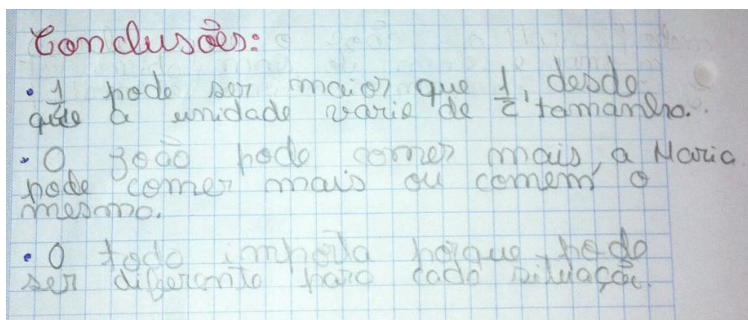 Conclusões:
• 1/4 pode ser maior que 1/2, desde
que a unidade varie de tamanho.
• O João pode comer mais, a Maria
pode comer mais ou comem o
mesmo.
• O todo importa porque pode
ser diferente para cada situação.